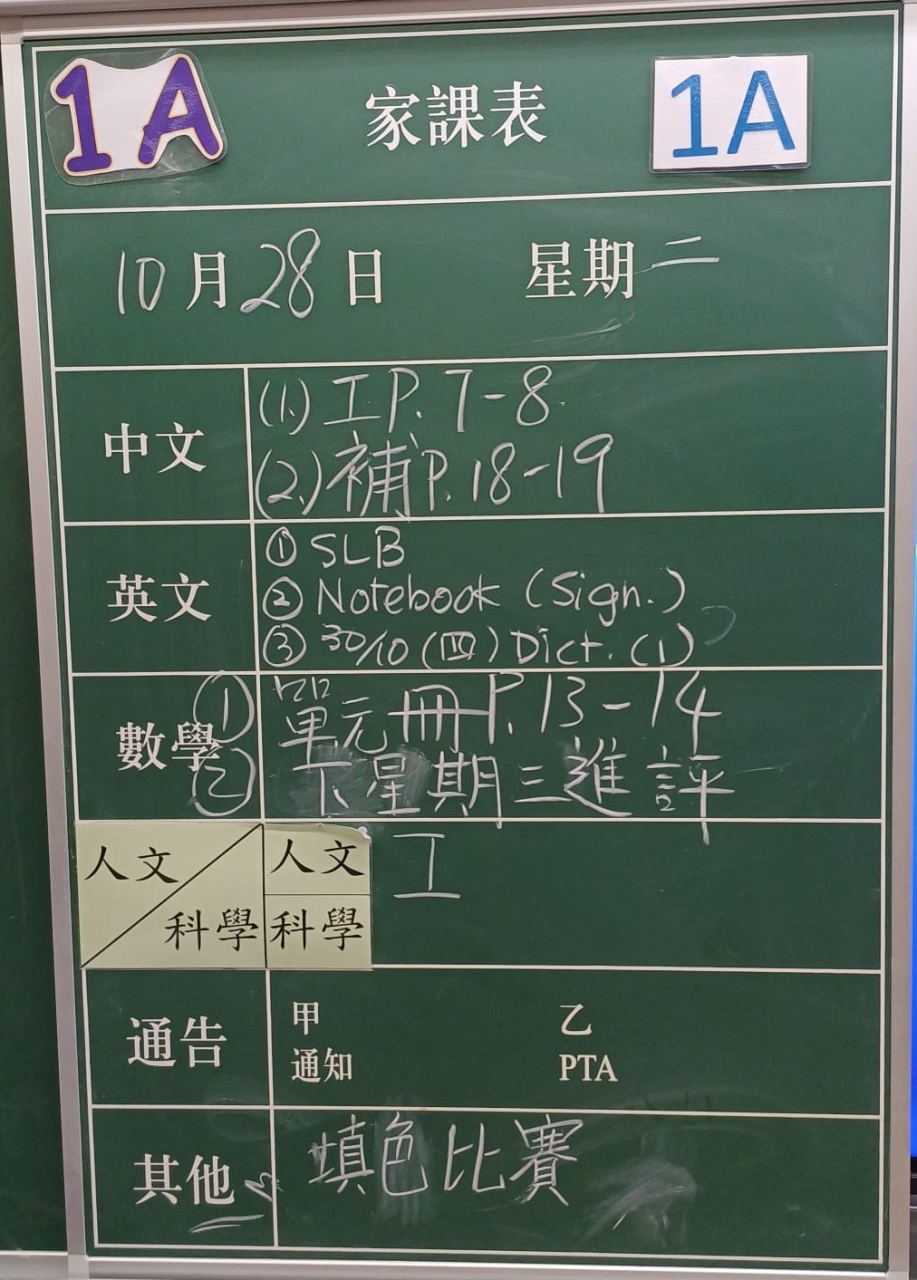 1A 家課表 1A
10月28日 星期二
中文 (1.) 工P. 7-8
(2.) 補P. 18-19
英文 ① SLB
② Notebook (Sign.)
③ 30/10 (四) Dict. (1)
數學 ① 單元冊P. 13-14
② 下星期三進評
人文 人文 工
科學 科學
通告 甲 乙
通知 PTA
其他 填色比賽